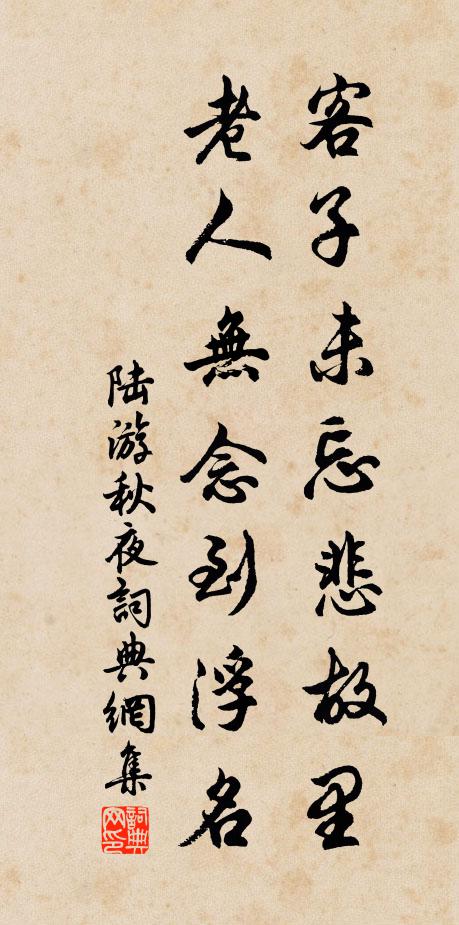 客子未忘悲故里
老人無念到浮名
陆游秋夜詞典網集
詞典
网印